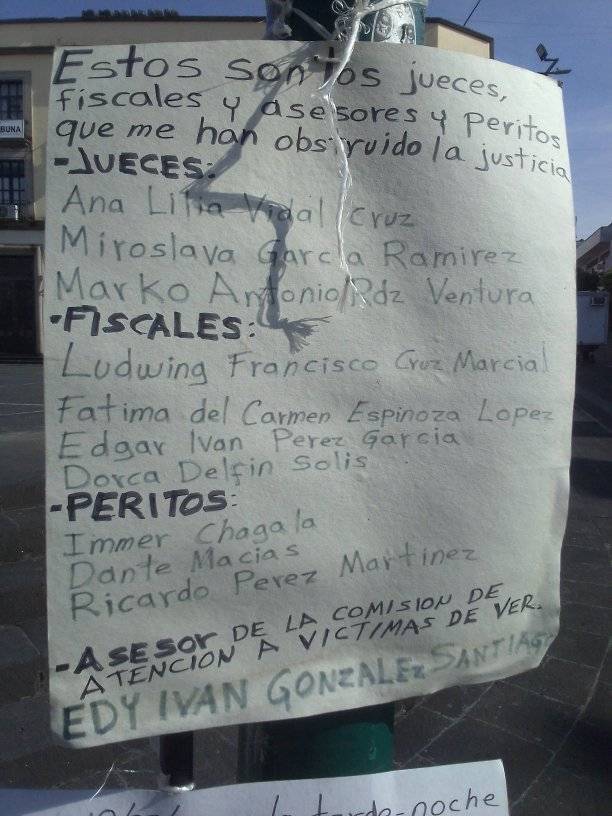 Estos son los jueces,
fiscales y asesores y peritos
que me han obstruido la justicia
-JUECES:
Ana Lilia Vidal Cruz
Miroslava Garcia Ramirez
Marko Antonio Rdz Ventura
-FISCALES:
Ludwing Francisco Cruz Marcial
Fatima del Carmen Espinoza Lopez
Edgar Ivan Perez Garcia
Dorca Delfin Solis
-PERITOS:
Immer Chagala
Dante Macias
Ricardo Perez Martinez
-ASESOR DE LA COMISION DE
ATENCION A VICTIMAS DE VER.
EDY IVAN GONZALEZ SANTIAGO
BUNA
tarde-noche